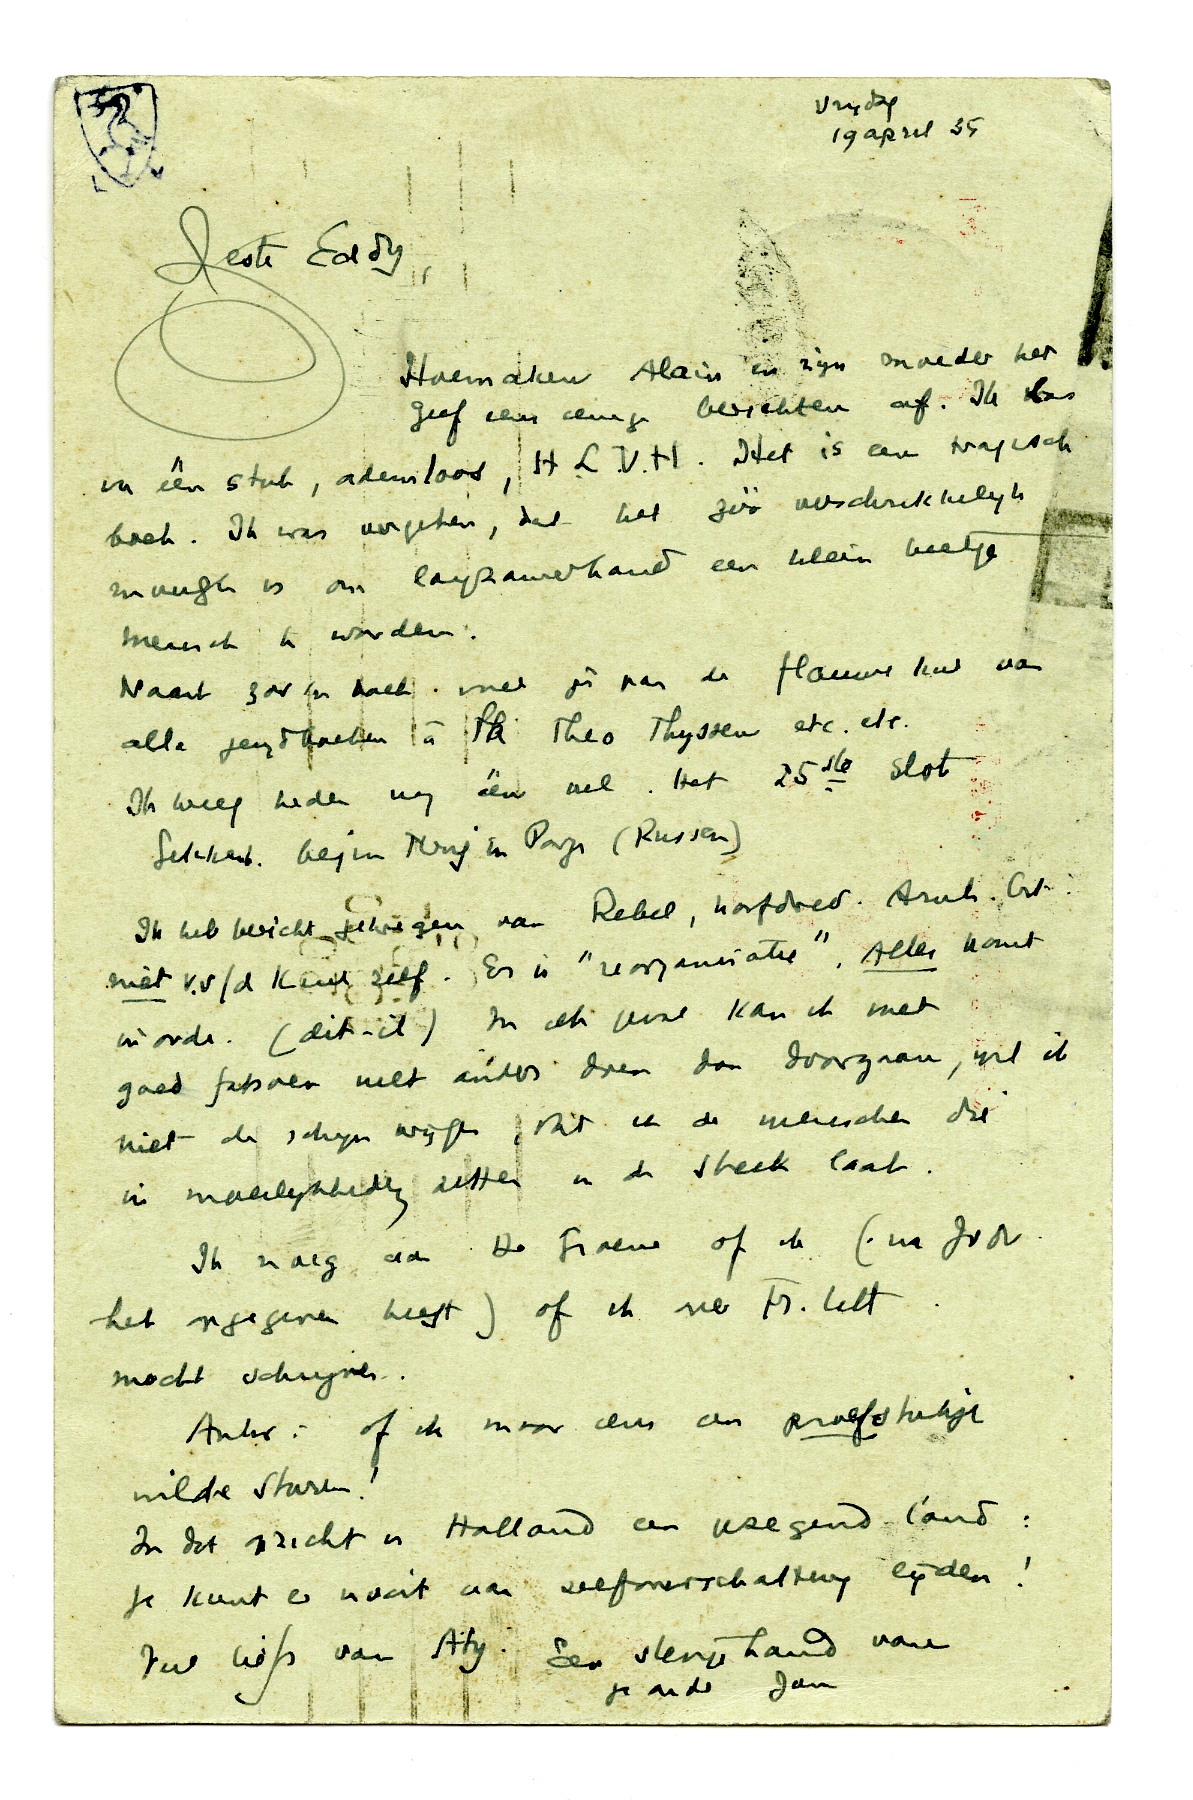 vrydag
19 april 35
Beste Eddy,
Hoe maken Alain en zijn moeder het
Geef eens eenige berichten af. Ik las
in één stuk, ademloos, H.L.V.H. Het is een tragisch
boek. Ik was vergeten, dat het zóó verschrikkelijk
moeilijk is om langzamerhand een klein beetje
mensch te worden.
Naast zoo'n boek voel je pas de flauwe kul van
alle jeugdboeken à la Theo Thyssen etc. etc.
Ik kreeg heden nog één vel. Het 25ste slot
begin Parijs (Russen)
Ik heb bericht gekregen van Rebel, hoofdred. Arnh. Crt.
niet v.s/d Krant zelf. Er is "reorganisatie". Alles komt
in orde. (dit-il) In elk geval kan ik met
goed fatsoen niet anders doen dan doorgaan, wil ik
niet de schijn wekken, dat ik de menschen die
in moeilijkheden zitten in de steek laat.
Ik vroeg aan de Groene of ik (nu
het opgegeven heeft) of ik over Fr. lett
mocht schrijven.
Antw: of ik maar eens een proefstukje
wilde sturen!
In dat opzicht is Holland een zegenend land:
je kunt er nooit aan zelfoverschatting lijden!
Veel liefs van Aty. Een stevige hand van
je oude Jan